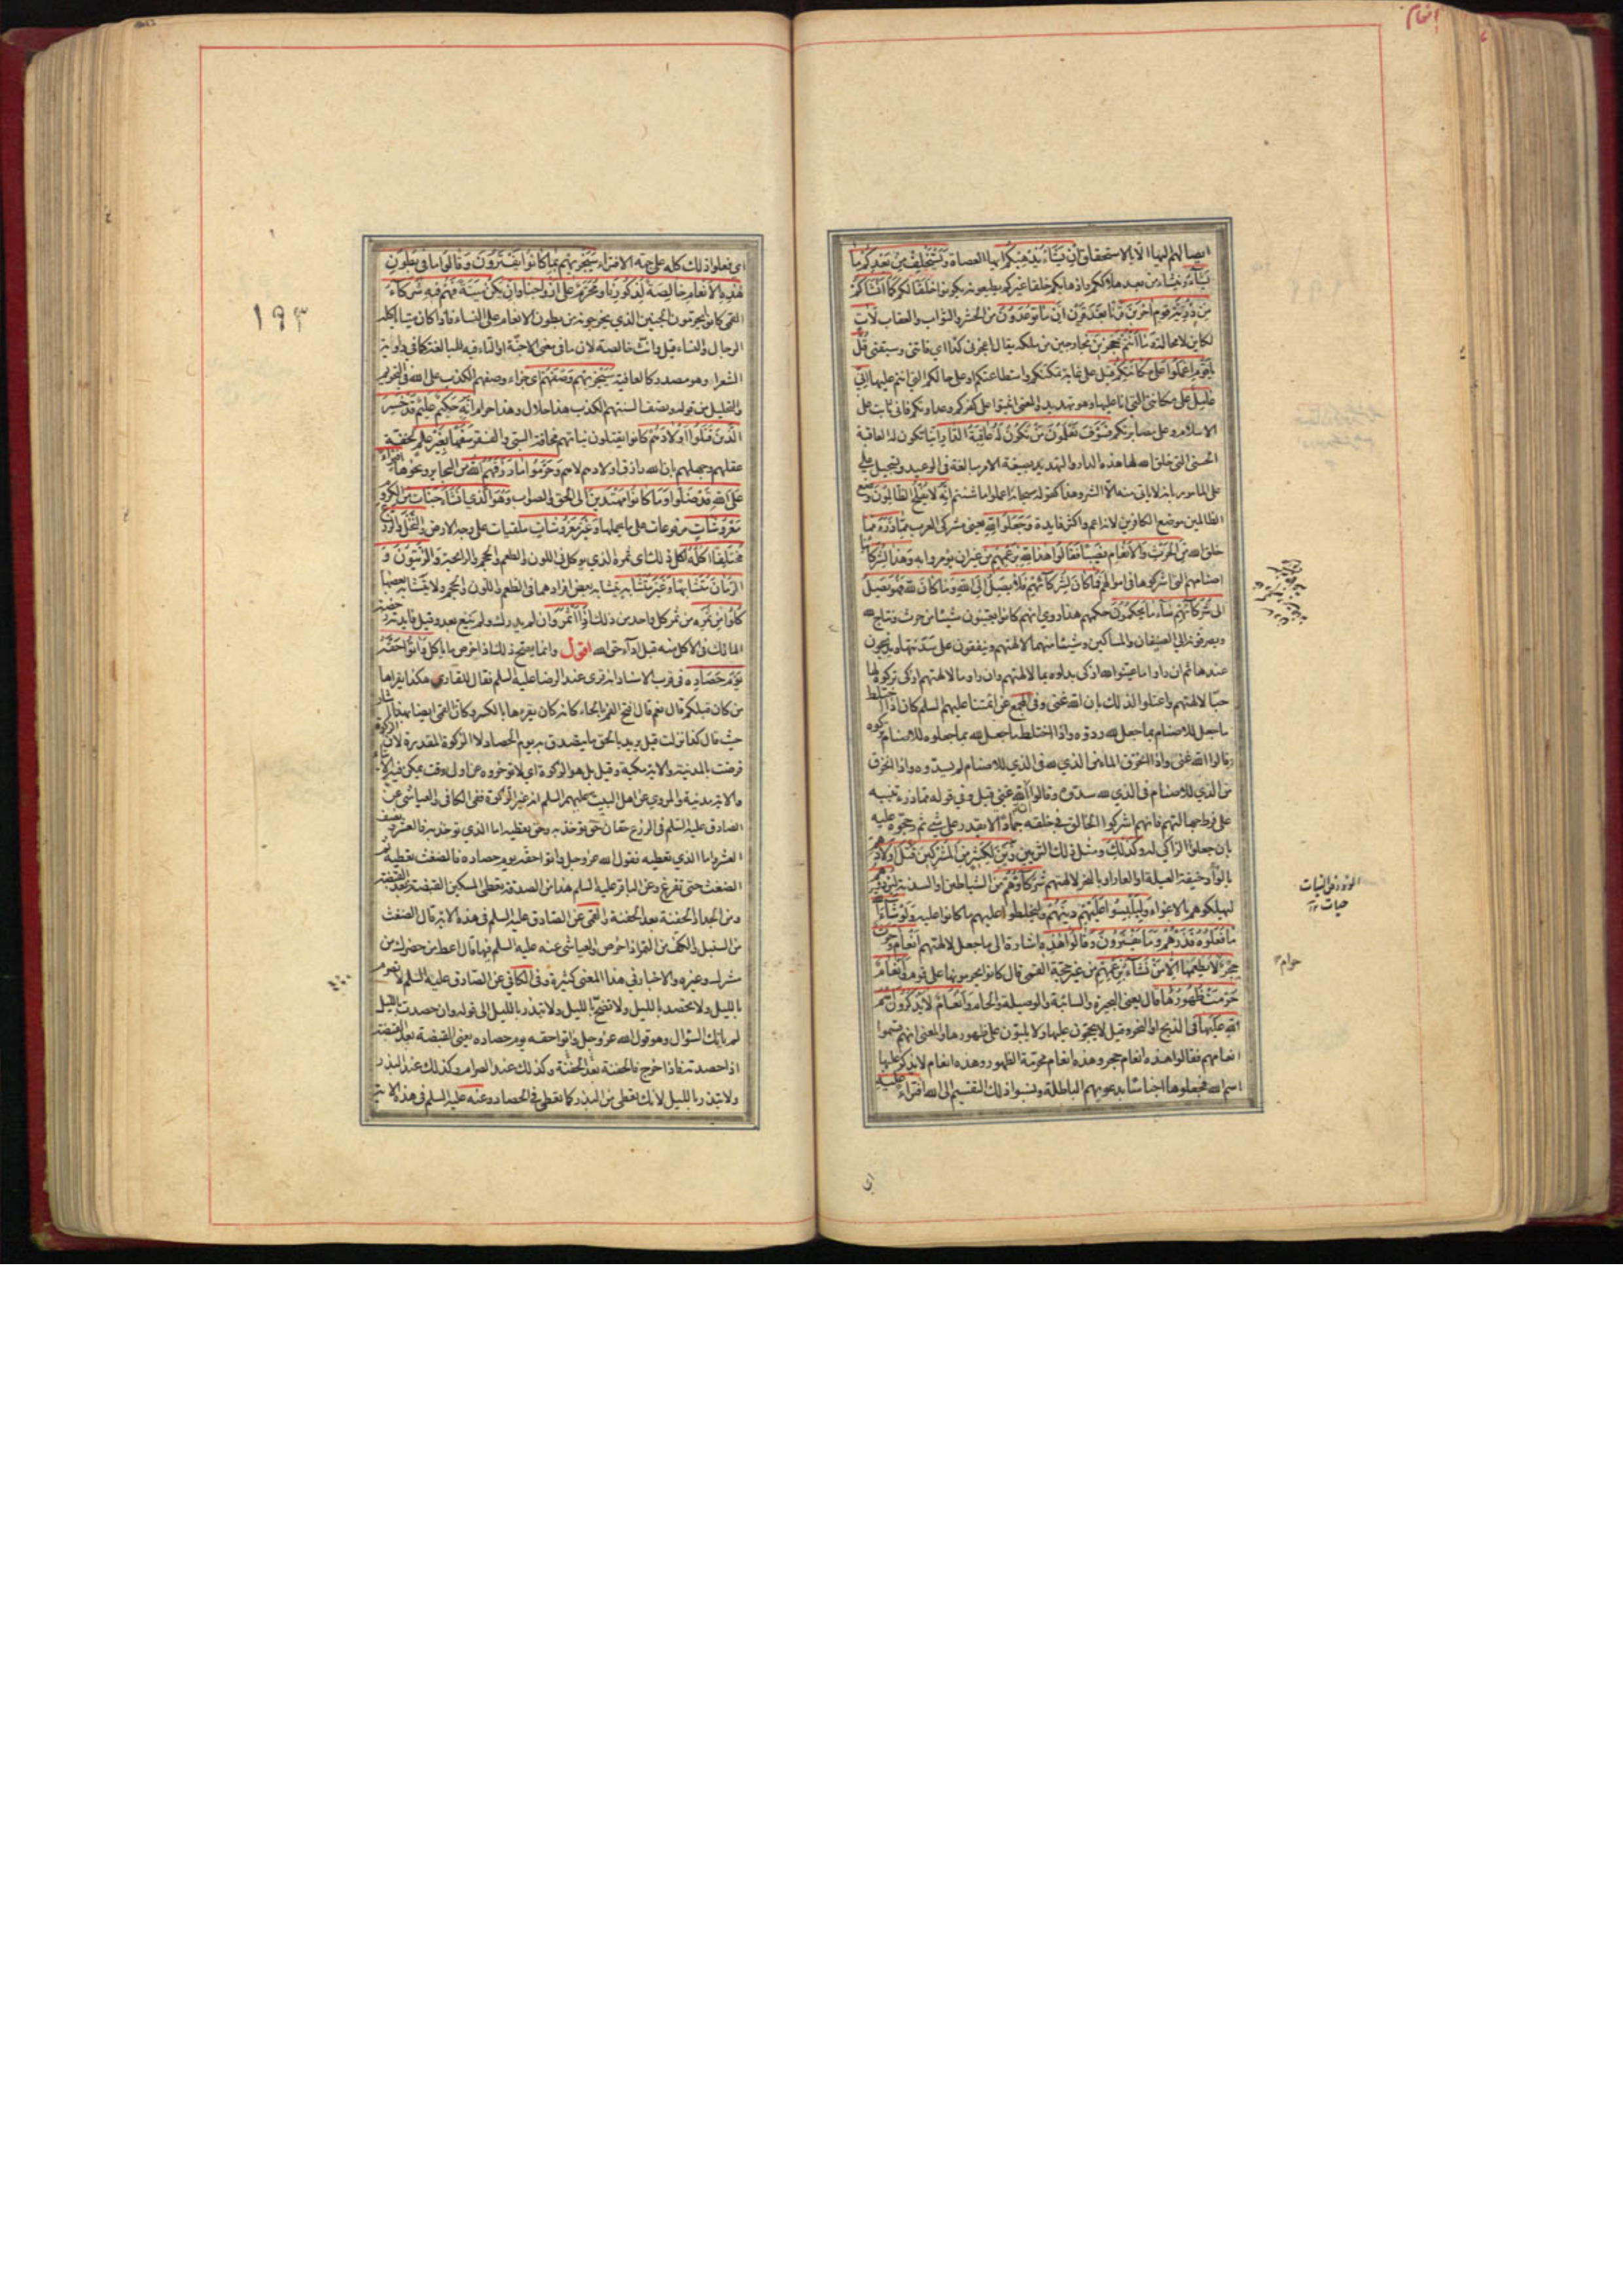 انعام
ايصالهم اليها الا بالاستحقاق ان يشاء يذهبكم ايها العصاة ويستخلف من بعدكم ما
يشاء وينشاء من بعد هلاككم واذهابكم خلقا غيركم يطيعونه يكونوا خلفا لكم كما انشاكم
من ذرية قوم اخرين قرنا بعد قرن ان ما توعدون من الحشر والثواب والعقاب لات
لكاين لا محالة وما انتم بمعجزين بخارجين من ملكه يقال اعجزنى كذا اى فاتنى وسبقنى قل
يا قوم اعملوا على مكانتكم قيل على غاية تمكنكم واستطاعتكم او على حالكم التى انتم عليها انى
عامل على مكانتى التى انا عليها وهو تهديد والمعنى اثبتوا على كفركم وعداوتكم فانى ثابت على
الاسلام وعلى مصابرتكم فسوف تعلمون من تكون له عاقبة الدار اينا تكون له العاقبة
الحسنى التى خلق الله لها هذه الدار والتهديد بصيغة الامر مبالغة فى الوعيد وتسجيل على
على المامور بانه لا ياتى منه الا الشر وهذا كقوله سبحانه اعملوا ما شئتم انه لا يفلح الظالمون وضع
الظالمين موضع الكافرين لانه اعم واكثر فايدة وجعلوا لله يعنى مشركى العرب مما ذرء مما
خلق الله من الحرث والانعام نصيبا فقالوا هذا لله بزعمهم من غير ان يؤمروا به وهذا لشركائنا
اصنامهم التى اشركوها فى اموالهم فما كان لشركائهم فلا يصل الى الله وما كان لله فهو يصل
الى شركائهم ساء ما يحكمون حكمهم هذا روى انهم كانوا يعينون شيئا من حرث ونتاج لله
ويصرفونه الى الضيفان والمساكين وشيئا منهما لالهتهم وينفقون على سدنتها ويذبحون
عندها ثم ان راوا ما عينوا لله ازكى بدلوه بما لالهتهم وان راوا ما لالهتهم ازكى تركوه لها
حبا لالهتهم واعتلوا لذلك بان الله غنى وفى المجمع عن ائمتنا عليهم السلم كان اذا اختلط
ما جعل للاصنام بما جعل لله ردوه واذا اختلط ما جعل لله بما جعلوه للاصنام تركوه
وقالوا الله غنى واذا انخرق الماء من الذى لله فى الذى للاصنام لم يسدوه واذا انخرق
من الذى للاصنام فى الذى لله سدوه وقالوا الله غنى قيل وفى قوله مما ذرء تنبيه
على فرط جهالتهم فانهم اشركوا الخالق فى خلقه جمادا لا يقدر على شىء ثم رجحوه عليه
بان جعلوا الزاكى له وكذلك ومثل ذلك التزيين زين لكثير من المشركين قتل اولادهم
بالواد خيفة العيلة او العار او بالنحر لالهتهم شركاؤهم من الشياطين او السدنة ليردوهم
ليهلكوهم بالاغواء وليلبسوا عليهم دينهم وليخلطوا عليهم ما كانوا عليه ولو شاء الله
ما فعلوه فذرهم وما يفترون وقالوا هذه اشارة الى ما جعل لالهتهم انعام وحرث
حجر لا يطعمها الا من نشاء بزعمهم من غير حجة القمى قال كانوا يحرمونها على قوم وانعام
حرمت ظهورها قال يعنى البحيرة والسائبة والوصيلة والحام وانعام لا يذكرون اسم
الله عليها فى الذبح او النحر وقيل لا يحجون عليها ولا يلبون على ظهورها والمعنى انهم قسموا
انعامهم فقالوا هذه انعام حجر وهذه انعام محرمة الظهور وهذه انعام لا يذكر عليها
اسم الله فجعلوها اجناسا بدعويهم الباطلة ونسبوا ذلك التقسيم الى الله افتراء عليه
حرام
اى
١٩٣
اى فعلوا ذلك كله على جهة الافتراء سيجزيهم بما كانوا يفترون وقالوا ما فى بطون
هذه الانعام خالصة لذكورنا ومحرم على ازواجنا وان يكن ميتة فهم فيه شركاء
القمى كانوا يحرمون الجنين الذى يخرجونه من بطون الانعام على النساء فاذا كان ميتا ياكله
الرجال والنساء قيل وانث خالصة لان ما فى معنى الاجنة او التاء فيه للمبالغة كما فى راوية
الشعر او هو مصدر كالعافية سيجزيهم وصفهم اى جزاء وصفهم الكذب على الله فى التحريم
والتحليل من قوله وتصف السنتهم الكذب هذا حلال وهذا حرام انه حكيم عليم قد خسر
الذين قتلوا اولادهم كانوا يقتلون بناتهم مخافة السبى والفقر سفها بغير علم لخفة
عقلهم وجهلهم بان الله رازق اولادهم لا هم وحرموا ما رزقهم الله من البحاير ونحوها افتراء
على الله قد ضلوا وما كانوا مهتدين الى الحق والصواب وهو الذى انشاء جنات من الكروم
معروشات مرفوعات على ما يحملها وغير معروشات ملقيات على وجه الارض والنخل والزرع
مختلفا اكله اكل ذلك اى ثمره الذى يوكل فى اللون والطعم والحجم والرايحة والزيتون و
الرمان متشابها وغير متشابه يتشابه بعض افرادهما فى الطعم واللون والحجم ولا يتشابه بعضها
كلوا من ثمره من ثمر كل واحد من ذلك اذا اثمر وان لم يدرك ولم يينع بعد وقيل فايدته رخصة
المالك فى الاكل منه قبل اداء حق الله اقول وانما يصح ذلك اذا خرص ما ياكل واتوا حقه
يوم حصاده فى قرب الاسناد انه قرى عند الرضا عليه السلم فقال للقارى هكذا يقراها
من كان قبلكم قال نعم قال افتح الفم بالحاء كانه كان يقرءها بالكسر وكان القمى ايضا يقرا
حيث قال كذا نزلت قيل يريد بالحق ما يتصدق به يوم الحصاد لا الزكوة المقدرة لانها
فرضت بالمدينة والاية مكية وقيل بل هو الزكوة اى لا تؤخروه عن اول وقت يمكن فيه الايتاء
والاية مدنية والمروى عن اهل البيت عليهم السلم انه غير الزكوة ففى الكافى والعياشى عن
الصادق عليه السلم فى الزرع حقان حق تؤخذ به وحق تعطيه اما الذى تؤخذ به فالعشر ونصف
العشر واما الذى تعطيه فقول الله عز وجل واتوا حقه يوم حصاده فالضغث تعطيه ثم
الضغث حتى تفرغ وعن الباقر عليه السلم هذا من الصدقة يعطى المسكين القبضة بعد القبضة
ومن الجداد الحفنة بعد الحفنة والقمى عن الصادق عليه السلم فى هذه الاية قال الضغث
من السنبل والكف من التمر اذا خرص والعياشى عنه عليه السلم فيها قال اعط من حضرك من
مشرك وغيره والاخبار فى هذا المعنى كثيرة وفى الكافى عن الصادق عليه السلم لا تصرم
بالليل ولا تحصد بالليل ولا تضح بالليل ولا تبذر بالليل الى قوله وان حصدت بالليل
لم ياتك السؤال وهو قول الله عز وجل واتوا حقه يوم حصاده يعنى القبضة بعد القبضة
اذا حصدته فاذا خرج فالحفنة بعد الحفنة وكذلك عند الصرام وكذلك عند البذر
ولا تبذر بالليل لانك تعطى من البذر كما تعطى فى الحصاد وعنه عليه السلم فى هذه الاية